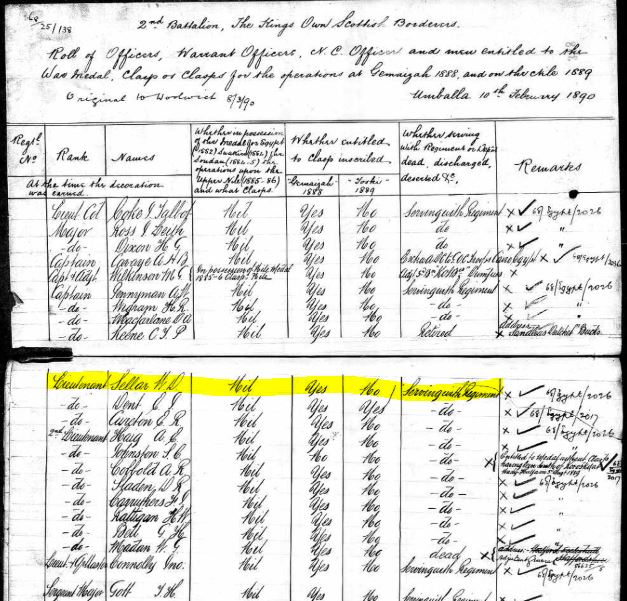 68/
25/138
2nd Battalion, The Kings Own Scottish Borderers.
Roll of Officers, Warrant Officers, N.C. Officers and men entitled to the
War Medal, Clasp or Clasps for the operations at Gemaizah 1888, and on the Nile 1889
Original to Woolwich 8/3/90 Umballa 10th February 1890
Regtl No Rank Names Whether in possession of the Medal for Egypt (1882) Suakin (1884) the Soudan (1884-5) the operations upon the Upper Nile (1885-86) and what Clasps. Whether entitled to Clasp inscribed Whether serving with Regiment or Depot dead, discharged, deserted &c. Remarks
At the time the decoration was earned. Gemaizah 1888 Toski 1889
Lieut Col Coke J. Talbot Nil Yes No Serving with Regiment 68/Egypt/2026
Major Ross J. Nil Yes No do "
-do- Dixon H. G. Nil Yes No do "
Captain A. H. Nil Yes No
Capt & Adjt Wilkinson M. G. In possession of Nile Medal 1885-6 Clasp Nile Yes No
Captain Pennyman A. Nil Yes No Serving with Regiment 68/Egypt/2026
-do- Wigram H. R. Nil Yes No -do- "
-do- Macfarlane D. A. Nil Yes No -do- "
-do- Keene C. J. P. Nil Yes No Retired address
Lieutenant Sellar W. D. Nil Yes No Serving with Regiment 68/Egypt/2026
-do- Dent C. J. Nil Yes Yes -do- 68/Egypt/2017
-do- Cureton E. R. Nil Yes No -do- 68/Egypt/2026
2nd Lieutenant Haig A. E. Nil Yes No -do- "
-do- Johnston S. C. Nil No No do Entitled to Medal without Clasp
-do- A. R. Nil Yes No -do- 68/Egypt/2026
-do- Sladen D. R. Nil Yes No -do- "
-do- Carruthers F. J. Nil Yes No -do- "
-do- Rattigan H. W. Nil Yes No -do- "
-do- Bell G. H. Nil Yes No -do- "
-do- W. G. Nil Yes No dead address
Connolly Jno. Nil Yes No Serving with Regiment 68/Egypt/2026
Sergeant Major Gott J. H. Nil Yes No